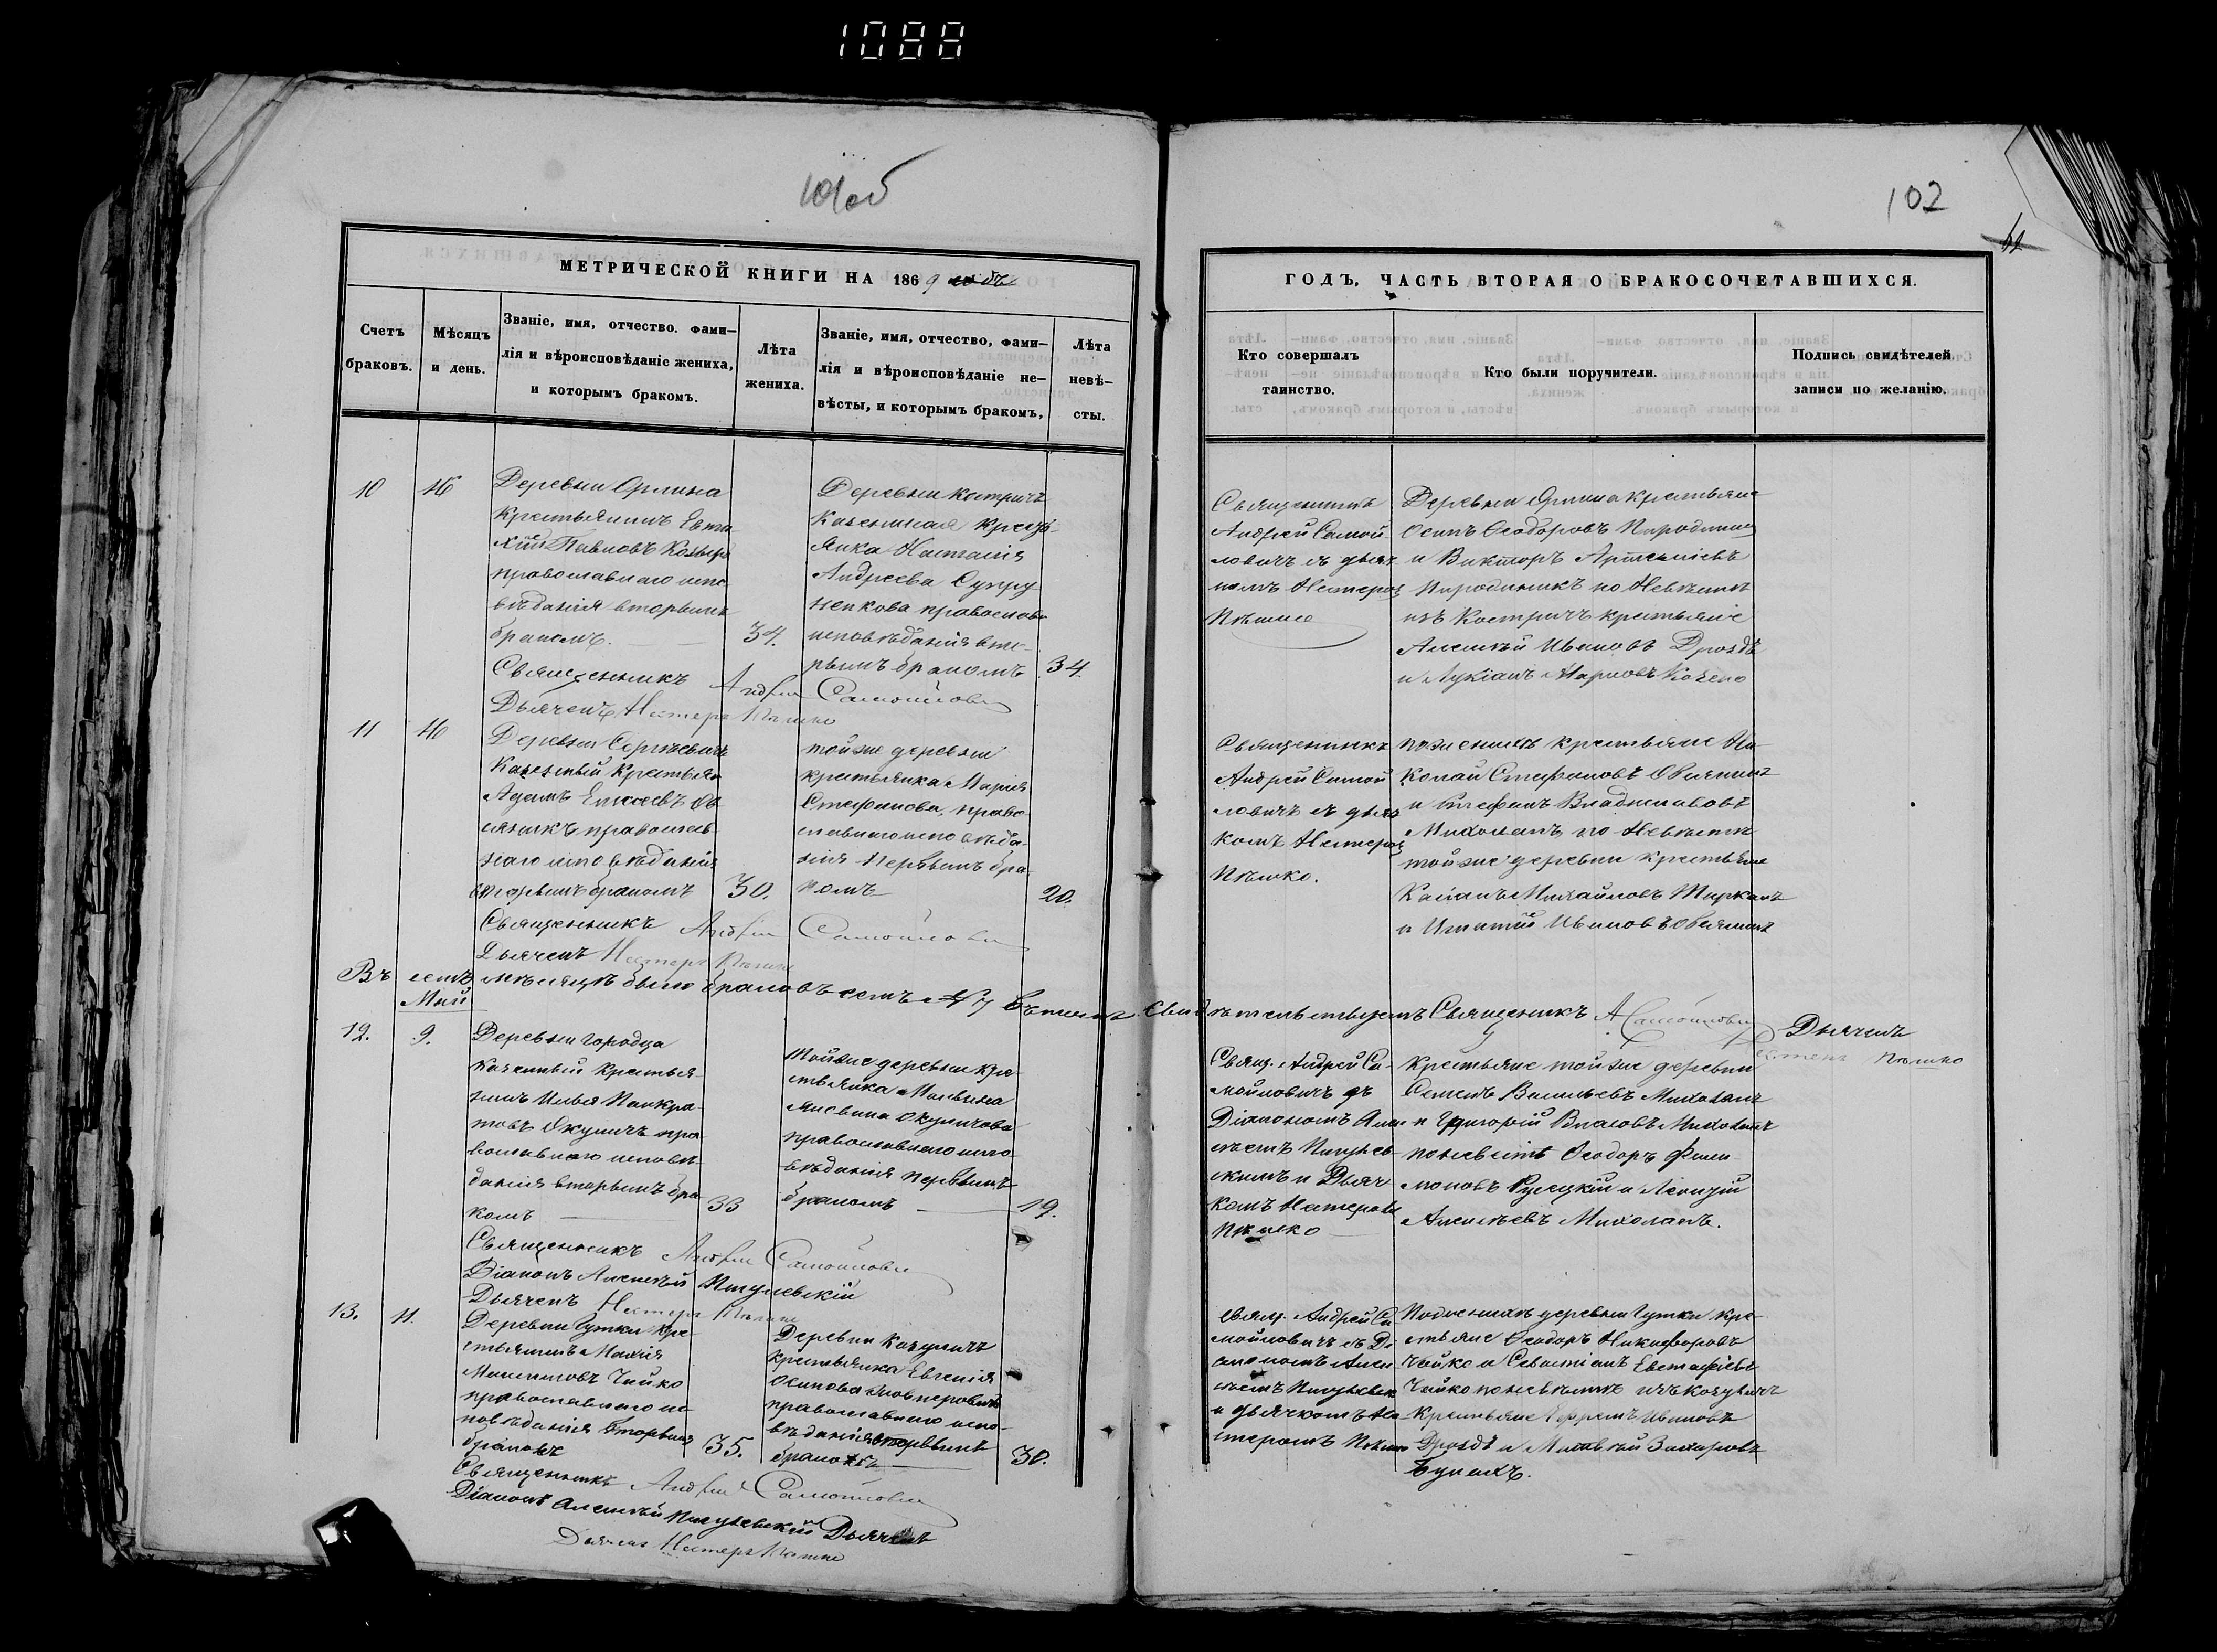 1088
101об
102
МЕТРИЧЕСКОЙ КНИГИ НА 1869
Счетъ браковъ.
Мѣсяцъ и день.
Званіе, имя, отчество. фами-
лія и вѣроисповѣданіе жениха,
и которымъ бракомъ.
Лѣта жениха.
Званіе, имя, отчество, фами-
лія и вѣроисповѣданіе не-
вѣсты, и которымъ бракомъ,
Лѣта невѣ-
сты.
ГОДЪ, ЧАСТЬ ВТОРАЯ О БРАКОСОЧЕТАВШИХСЯ.
Кто совершалъ
таинство.
Кто были поручители.
Подпись свидѣтелей
записи по желанію.
10
Деревни
крестьянинъ
Павловъ
православнаго испо
вѣданія вторымъ
бракомъ.
34.
Деревни Костричъ
Андреева Супру
ненкова православ
исповѣданія вто-
рымъ бракомъ
34.
Священникъ
Андрей Самой
ловичъ съ дьяч
комъ Несторомъ
Пѣшко
Деревни крестьяне
Осипъ Ѳеодоровъ
и Викторъ Артемьевъ
по Невѣстѣ
изъ Костричъ крестьяне
Алексѣй Ивановъ Дроздъ
и Лукіанъ Марковъ
Священникъ Андрей Самойлович
Дьячекъ Нестеръ Пѣшко
11
Деревни Сергѣевичъ
Казенный Крестьян
Адамъ Елисеевъ Ов
сяникъ православ
наго исповѣданія
вторымъ бракомъ
30.
той же деревни
крестьянка Марія
Стефанова, право
славнаго исповѣда-
нія первымъ бра
комъ
20.
Священникъ
Андрей Самой
ловичъ съ дьяч
комъ Нестеромъ
Пѣшко.
по женихѣ крестьяне Ни
колай Стефановъ Овсяникъ
и Стефанъ Владиславовъ
Михоланъ по Невѣстѣ
той же деревни крестьяне
Михайловъ
и Игнатій Ивановъ Овсяникъ
Священникъ Андрей Самойлович
Дьячекъ Нестеръ Пѣшко
Въ семъ мѣсяцѣ было браковъ семь № 7 въ чемъ свидѣтельствуетъ Священникъ А Самойлович Дьячекъ
Нестеръ Пѣшко
Май
12.
9.
Деревни Городца
казенный крестья-
нинъ Илья Панкра
товъ Окуличъ пра
вославнаго исповѣ
данія вторымъ бра
комъ
33
Той же деревни кре
стьянка
православнаго испо-
вѣданія первымъ
бракомъ
19.
Свящ. Андрей Са-
мойловичъ съ
Діакономъ Алек
сѣемъ Пигулев
скимъ и Дьяч
комъ Нестеромъ
Пѣшко
Крестьяне той же деревни
Семенъ Васильевъ Михоланъ
и Григорій Власовъ Михоланъ
по невѣстѣ Ѳеодоръ Фили
моновъ Русецкій и Леонтій
Алексѣевъ Михоланъ.
Священникъ Андрей Самойлович
Діаконъ Алексѣй Пигулевскій
Дьячекъ Нестеръ Пѣшко
13.
11.
Деревни Гутки кре
стьянинъ
Чайко
православнаго ис
повѣданія вторымъ
бракомъ
35.
Деревни Козуличъ
крестьянка Евгенія
Осипова
православнаго испо-
вѣданія вторымъ
бракомъ
30.
Свящ. Андрей Са
мойловичъ съ Ді
акономъ Алек
сѣемъ Пигулевск
и дьячкомъ Не
стеромъ Пѣшко
По женихѣ деревни Гутки кре-
стьяне Ѳеодоръ Никифоровъ
Чайко и Севастіанъ Евстафіевъ
Чайко по невѣстѣ изъ Козуличъ
Крестьяне Ефремъ Ивановъ
Дроздъ и Матвѣй Захаровъ
Священникъ Андрей Самойлович
Діаконъ Алексѣй Пигулевскій Дьячекъ
Дьячекъ Нестеръ Пѣшко